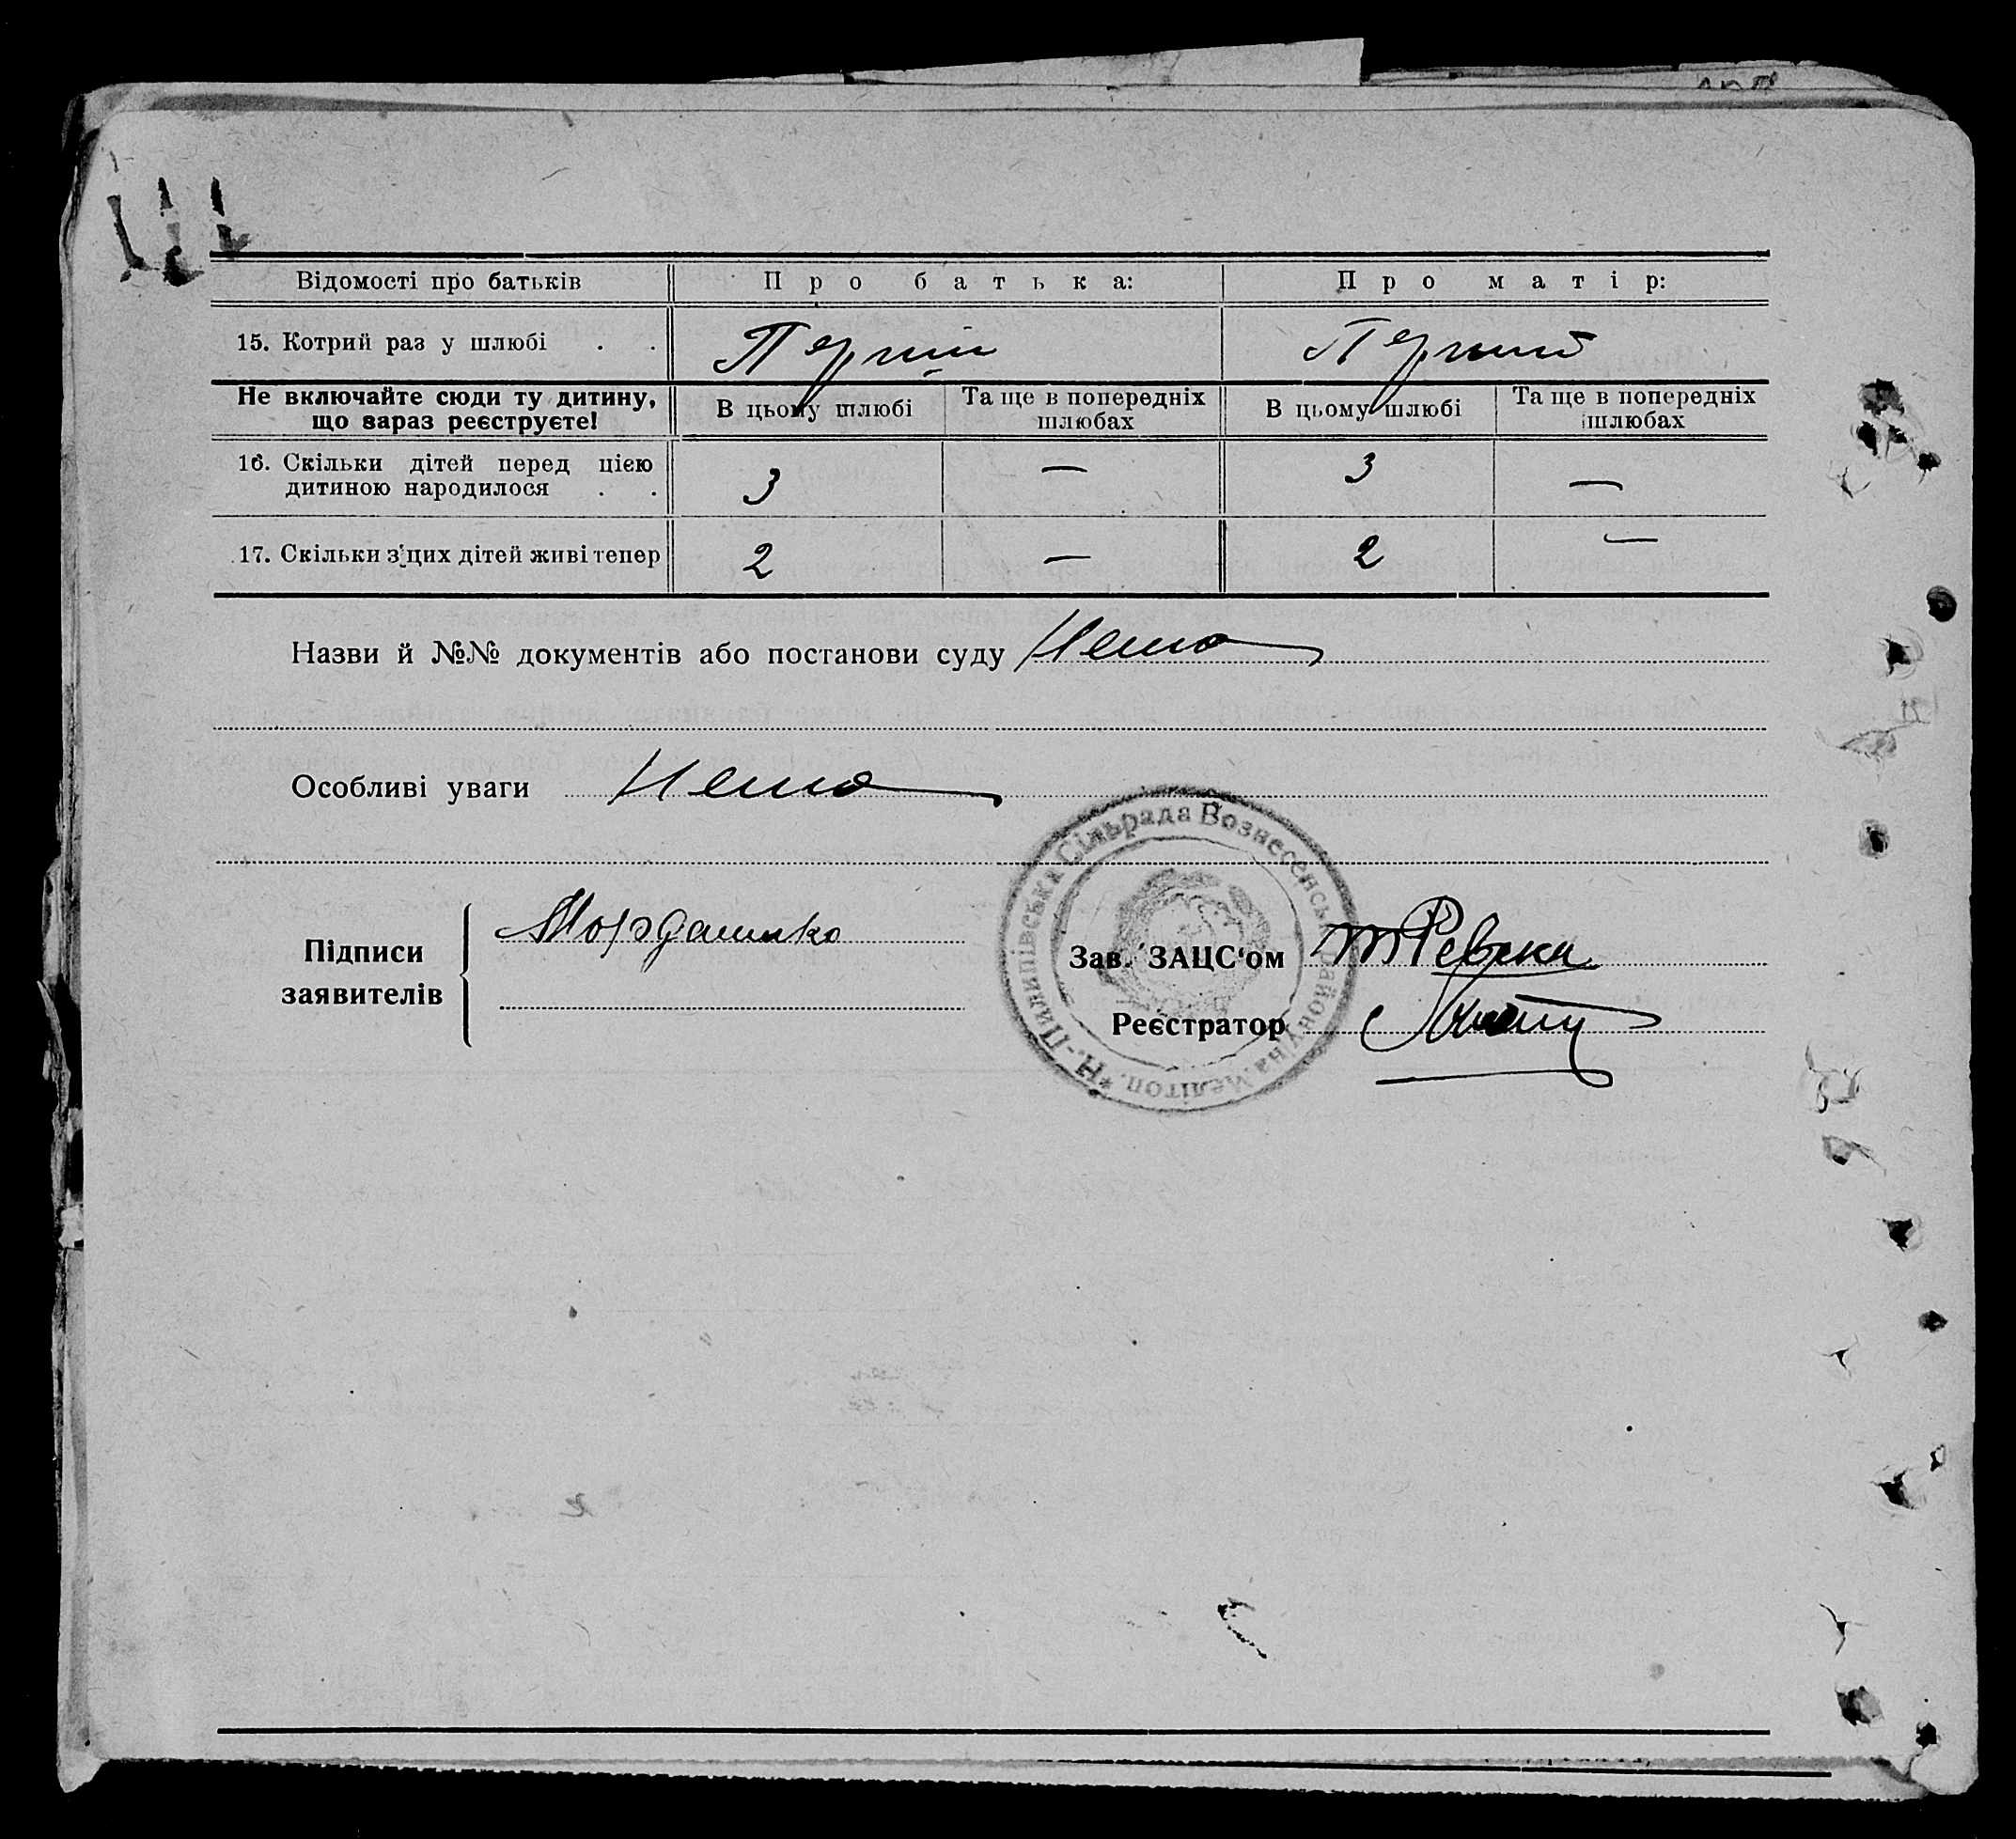 Відомості про батьків Про батька: Про матір:
15. Котрий раз у шлюбі . . Перший Перший
Не включайте сюди ту дитину, що зараз реєструєте! В цьому шлюбі Та ще в попередніх шлюбах В цьому шлюбі Та ще в попередніх шлюбах
16. Скільки дітей перед цією дитиною народилося . . 3 — 3 —
17. Скільки з цих дітей живі тепер 2 — 2 —
Назви й №№ документів або постанови суду Нема
Особливі уваги Нема
Підписи заявителів
Зав. ЗАЦС'ом
Реєстратор
Н.-Пилипівська Сільрада Вознесенськ. району на Меліто́п.